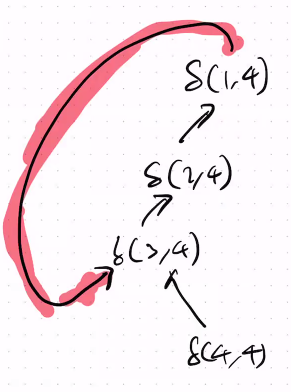 δ(1,4)
δ(2,4)
δ(3,4)
δ(4,4)